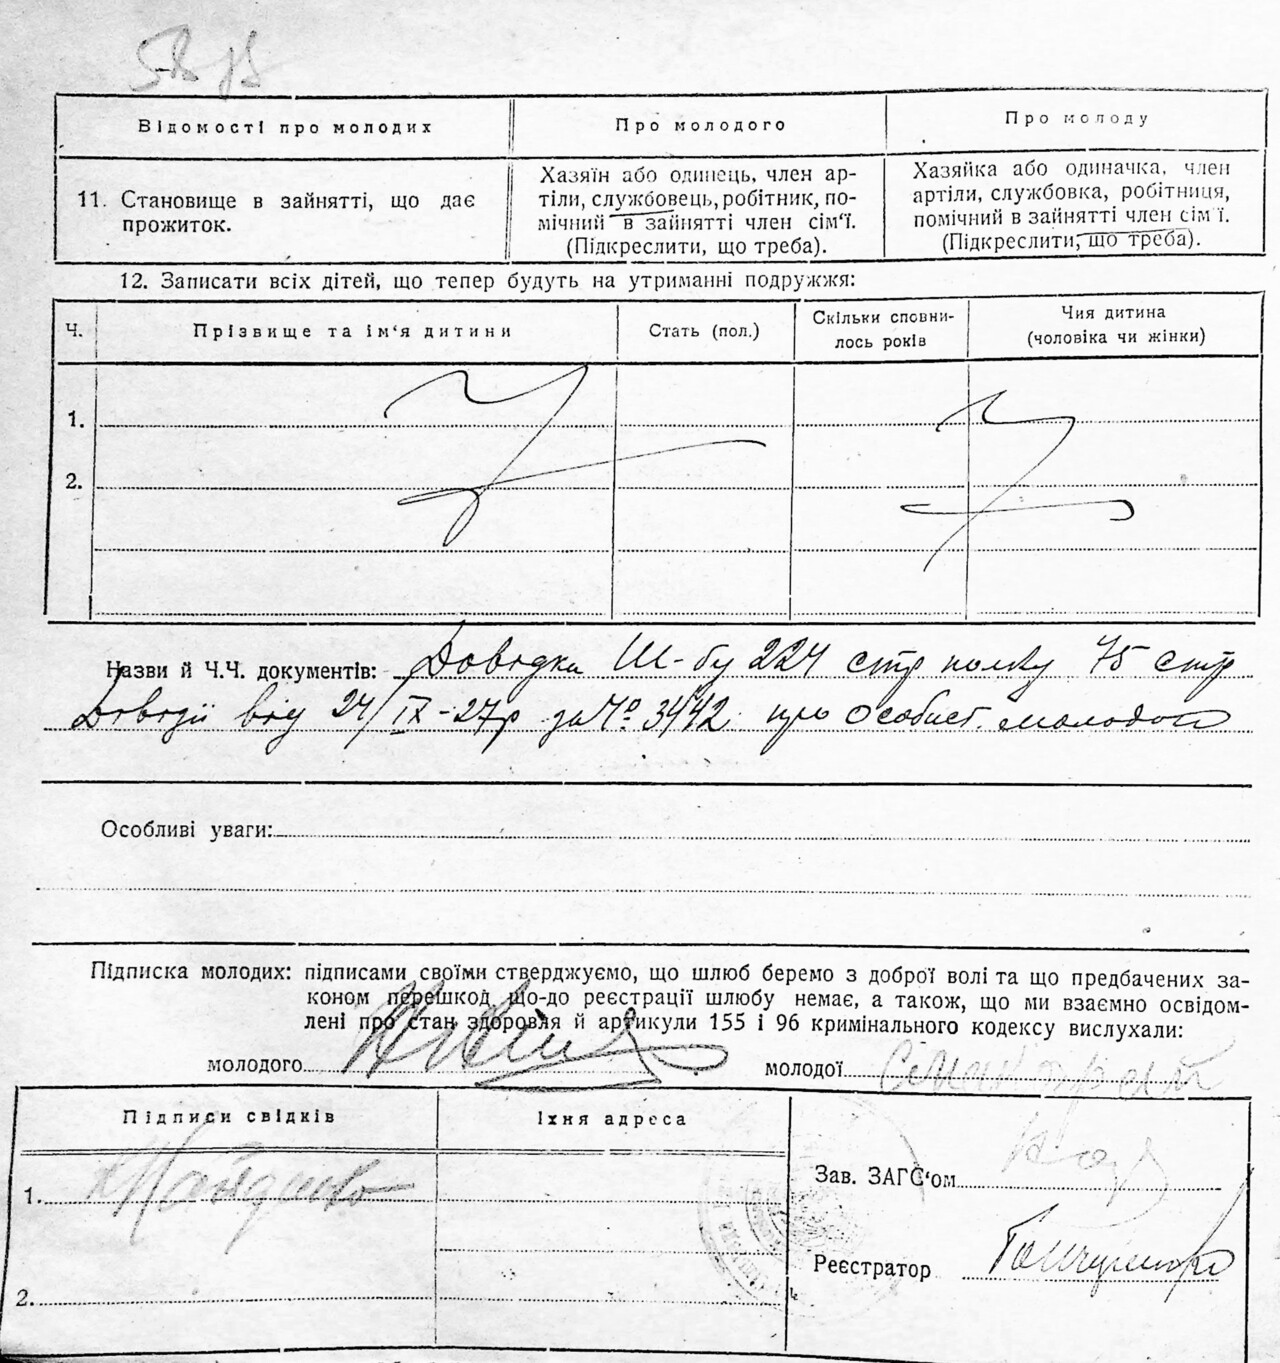 Відомості про молодих
Про молодого
Про молоду
11. Становище в зайнятті, що дає
прожиток.
Хазяїн або одинець, член ар-
тіли, службовець, робітник, по-
мічний в зайнятті член сім'ї.
(Підкреслити, що треба).
Хазяйка або одиначка, член
артіли, службовка, робітниця,
помічний в зайнятті член сім'ї.
(Підкреслити, що треба).
12. Записати всіх дітей, що тепер будуть на утриманні подружжя:
Ч.
Прізвище та ім'я дитини
Стать (пол.)
Скільки сповни-
лось років
Чия дитина
(чоловіка чи жінки)
1.
2.
Назви й Ч.Ч. документів: Довідка Ш-бу 224 стр полку 75 стр
Дивізії від 24/IX-27р за № 3442 про особист. молодого
Особливі уваги:
Підписка молодих: підписами своїми стверджуємо, що шлюб беремо з доброї волі та що предбачених за-
коном перешкод що-до реєстрації шлюбу немає, а також, що ми взаємно освідом-
лені про стан здоровля й артикули 155 і 96 кримінального кодексу вислухали:
молодого
молодої
Підписи свідків
Їхня адреса
1.
2.
Зав. ЗАГС'ом
Реєстратор